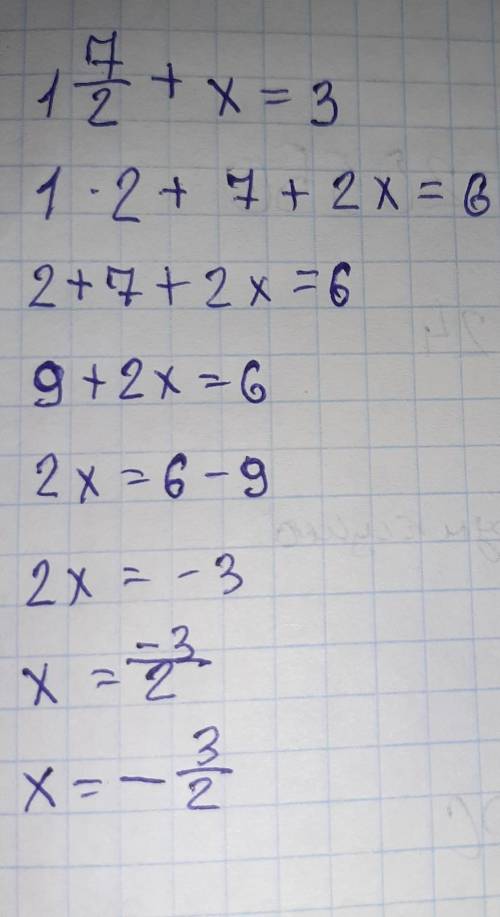 1 7/2 + x = 3
1 · 2 + 7 + 2x = 6
2 + 7 + 2x = 6
9 + 2x = 6
2x = 6 - 9
2x = - 3
x = -3/2
x = - 3/2